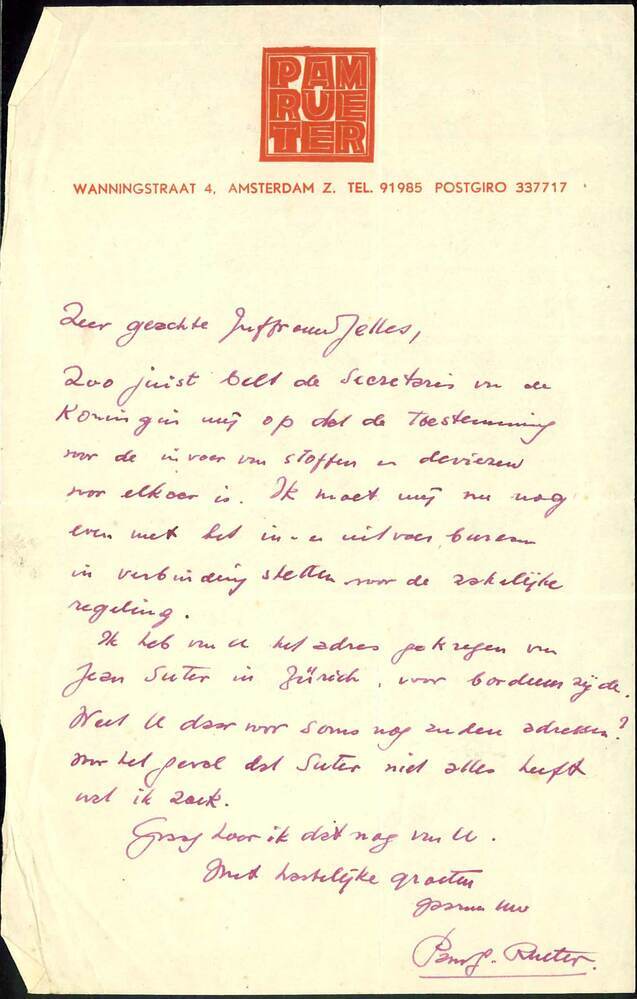 PAM
RUE
TER
WANNINGSTRAAT 4, AMSTERDAM Z. TEL. 91985 POSTGIRO 337717
Zeer geachte Juffrouw Jelles,
Zoo juist belt de Secretaris van de
Koningin mij op dat de Toestemming
voor de invoer van stoffen en deviezen
voor elkaar is. Ik moet mij nu nog
even met het in- en uitvoer bureau
in verbinding stellen voor de zakelijke
regeling.
Ik heb van U het adres gekregen van
Jean Suter in Zürich, voor borduurzijde.
Weet U daarvoor soms nog andere adressen?
voor het geval dat Suter niet alles heeft
wat ik zoek.
Graag hoor ik dat nog van U.
Met hartelijke groeten
gaarne Uw
Pam G. Rueter.